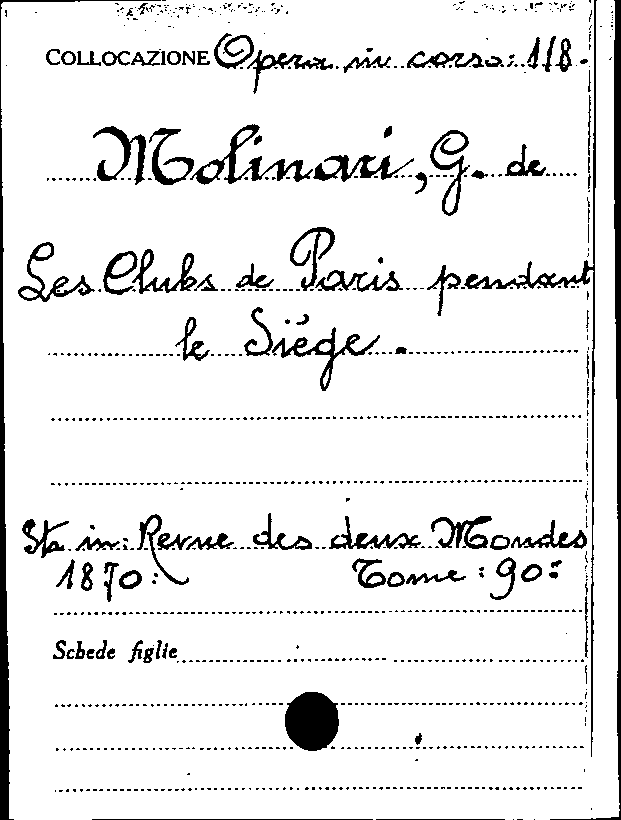 COLLOCAZIONE Opera in corso: 1/8.
Molinari, G. de
Les Clubs de Paris pendant
le Siége.
Sta in: Revue des deux Mondes
1870: Tome: 90:
Schede figlie